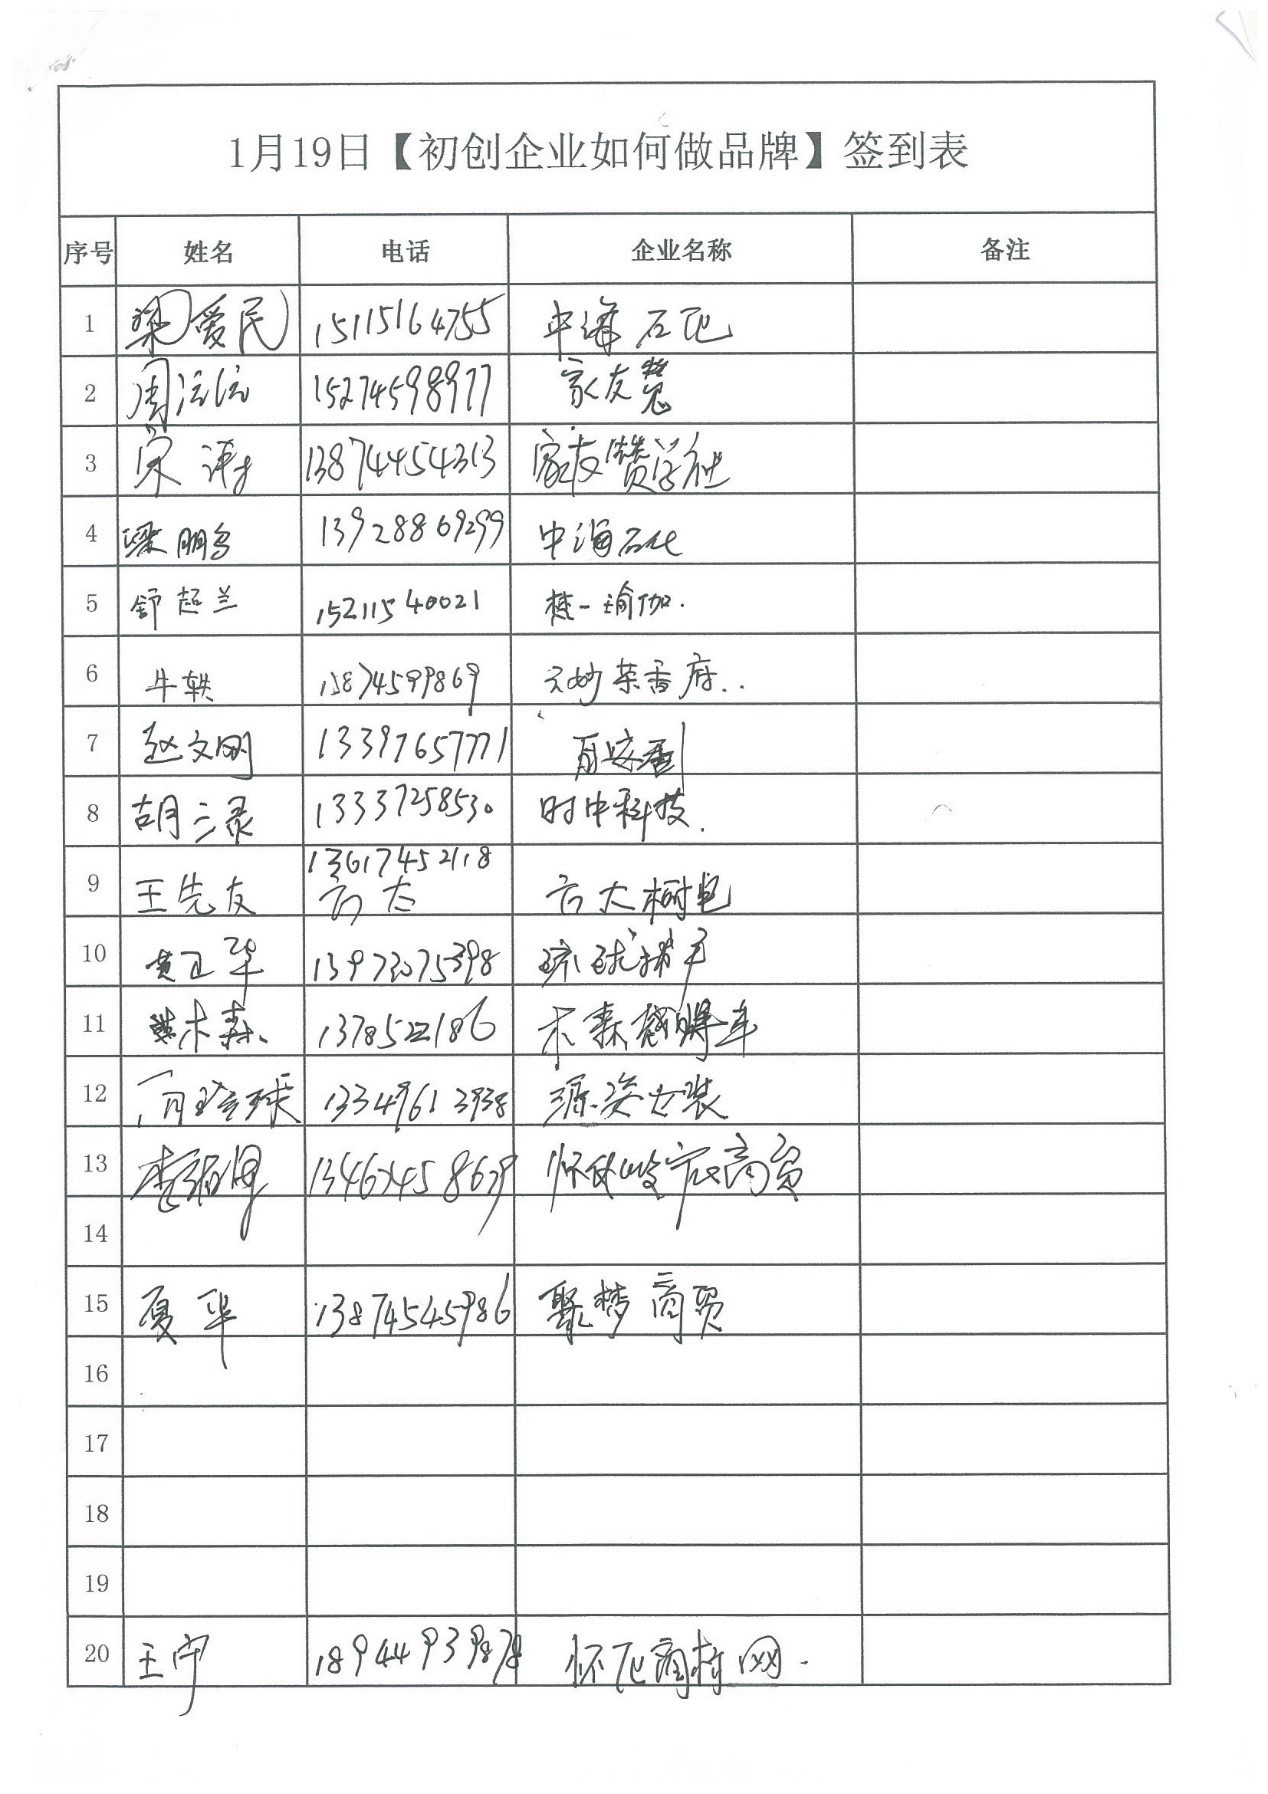 1月19日【初创企业如何做品牌】签到表
序号 姓名 电话 企业名称 备注
1 梁爱民 15115164755 中海石化
2 周 15274598977 家友
3 宋 13874454313 家友赞学社
4 梁鹏 13928869299 中海石化
5 舒超兰 15211540021 梵一瑜伽.
6 牛轶 15874599869 元妙茶香府..
7 赵文明 13397657771
8 胡三录 13337258530 时中科技.
9 王先友 13617452118
10 黄卫华 13973075398
11 木森 木森
12 13349613938 源姿女装
13 李 商贸
14
15 夏华 13874545986 聚梦商贸
16
17
18
19
20 王宁 18944939878 怀化商村网.